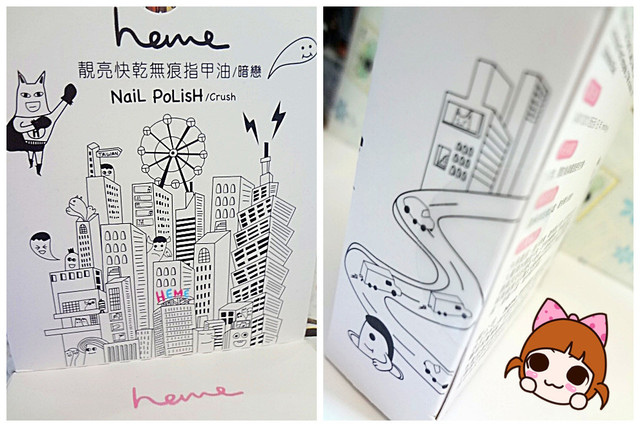 heme
靚亮快乾無痕指甲油/暗戀
NaiL PoLisH/Crush
TAIWAN
HEME
heme